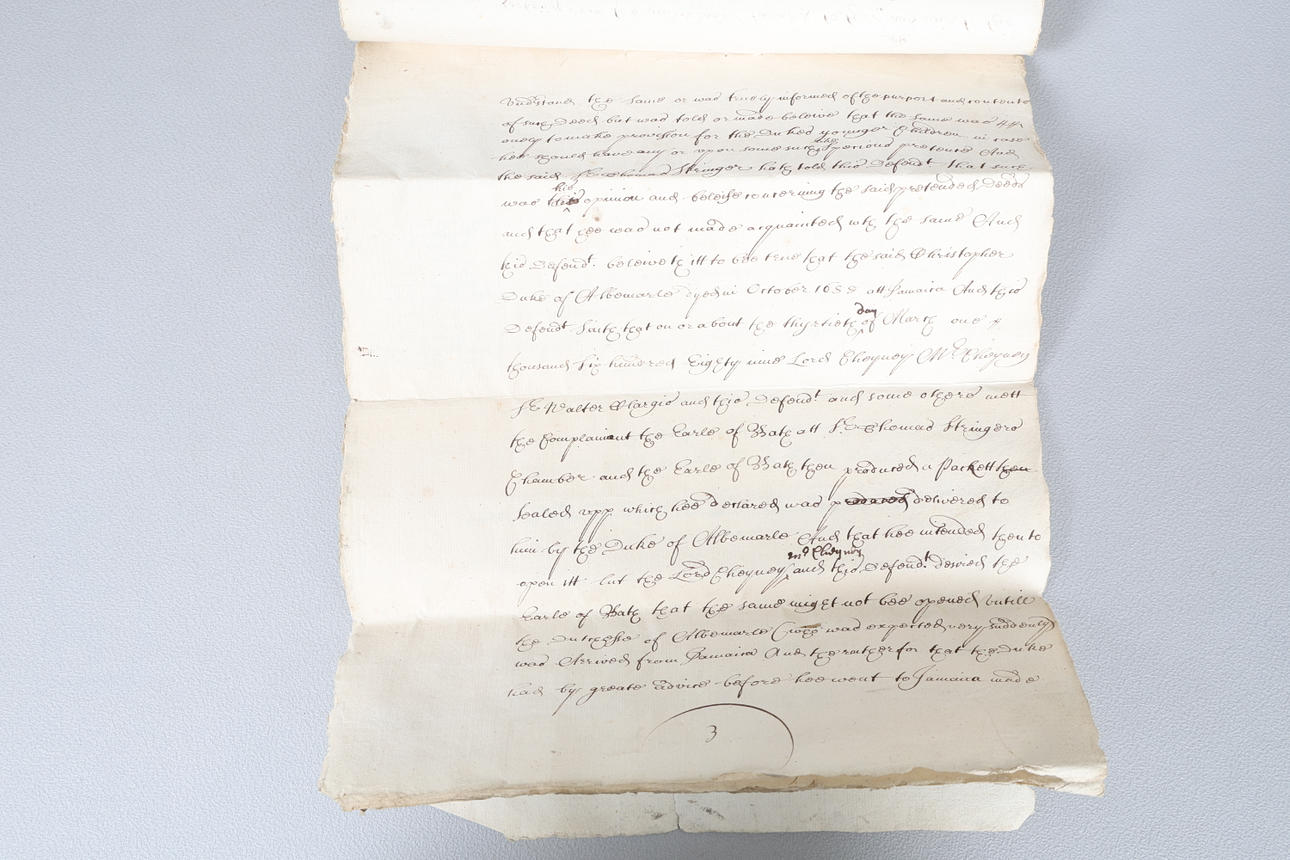 Understand the same or was truely informed of the purport and contents
of such Deed but was told or made beleive that the same was
onely to make provision for the Dukes younger Children in case
hee should have any or upon some such like specious pretence And
the said Sr Thomas Stringer hath told this Defendt that such
was his opinion and beleife concerning the said pretended Deed
and that hee was not made acquainted wth the same And
this Defendt. beleiveth itt to bee true that the said Christopher
Duke of Albemarle dyed in October 1688 att Jamaica And this
Defendt Saith that on or about the thirtieth day of March one
thousand Six hundred Eighty nine Lord Cheyney Mr Cheyney
Sr Walter Clargis and this Defendt and some others mett
the Complainant the Earle of Bath att Sr Thomas Stringers
Chamber and the Earle of Bath then produced a Packett then
sealed upp which hee declared was delivered to
him by the Duke of Albemarle And that hee intended then to
open itt but the Lord Cheyney mr Cheyney and this Defendt desired the
Earle of Bath that the same might not bee opened untill
the Dutchesse of Albemarle (who was expected very suddenly)
was Arrived from Jamaica And the rather for that the Duke
had by greate advice before hee went to Jamaica made
3